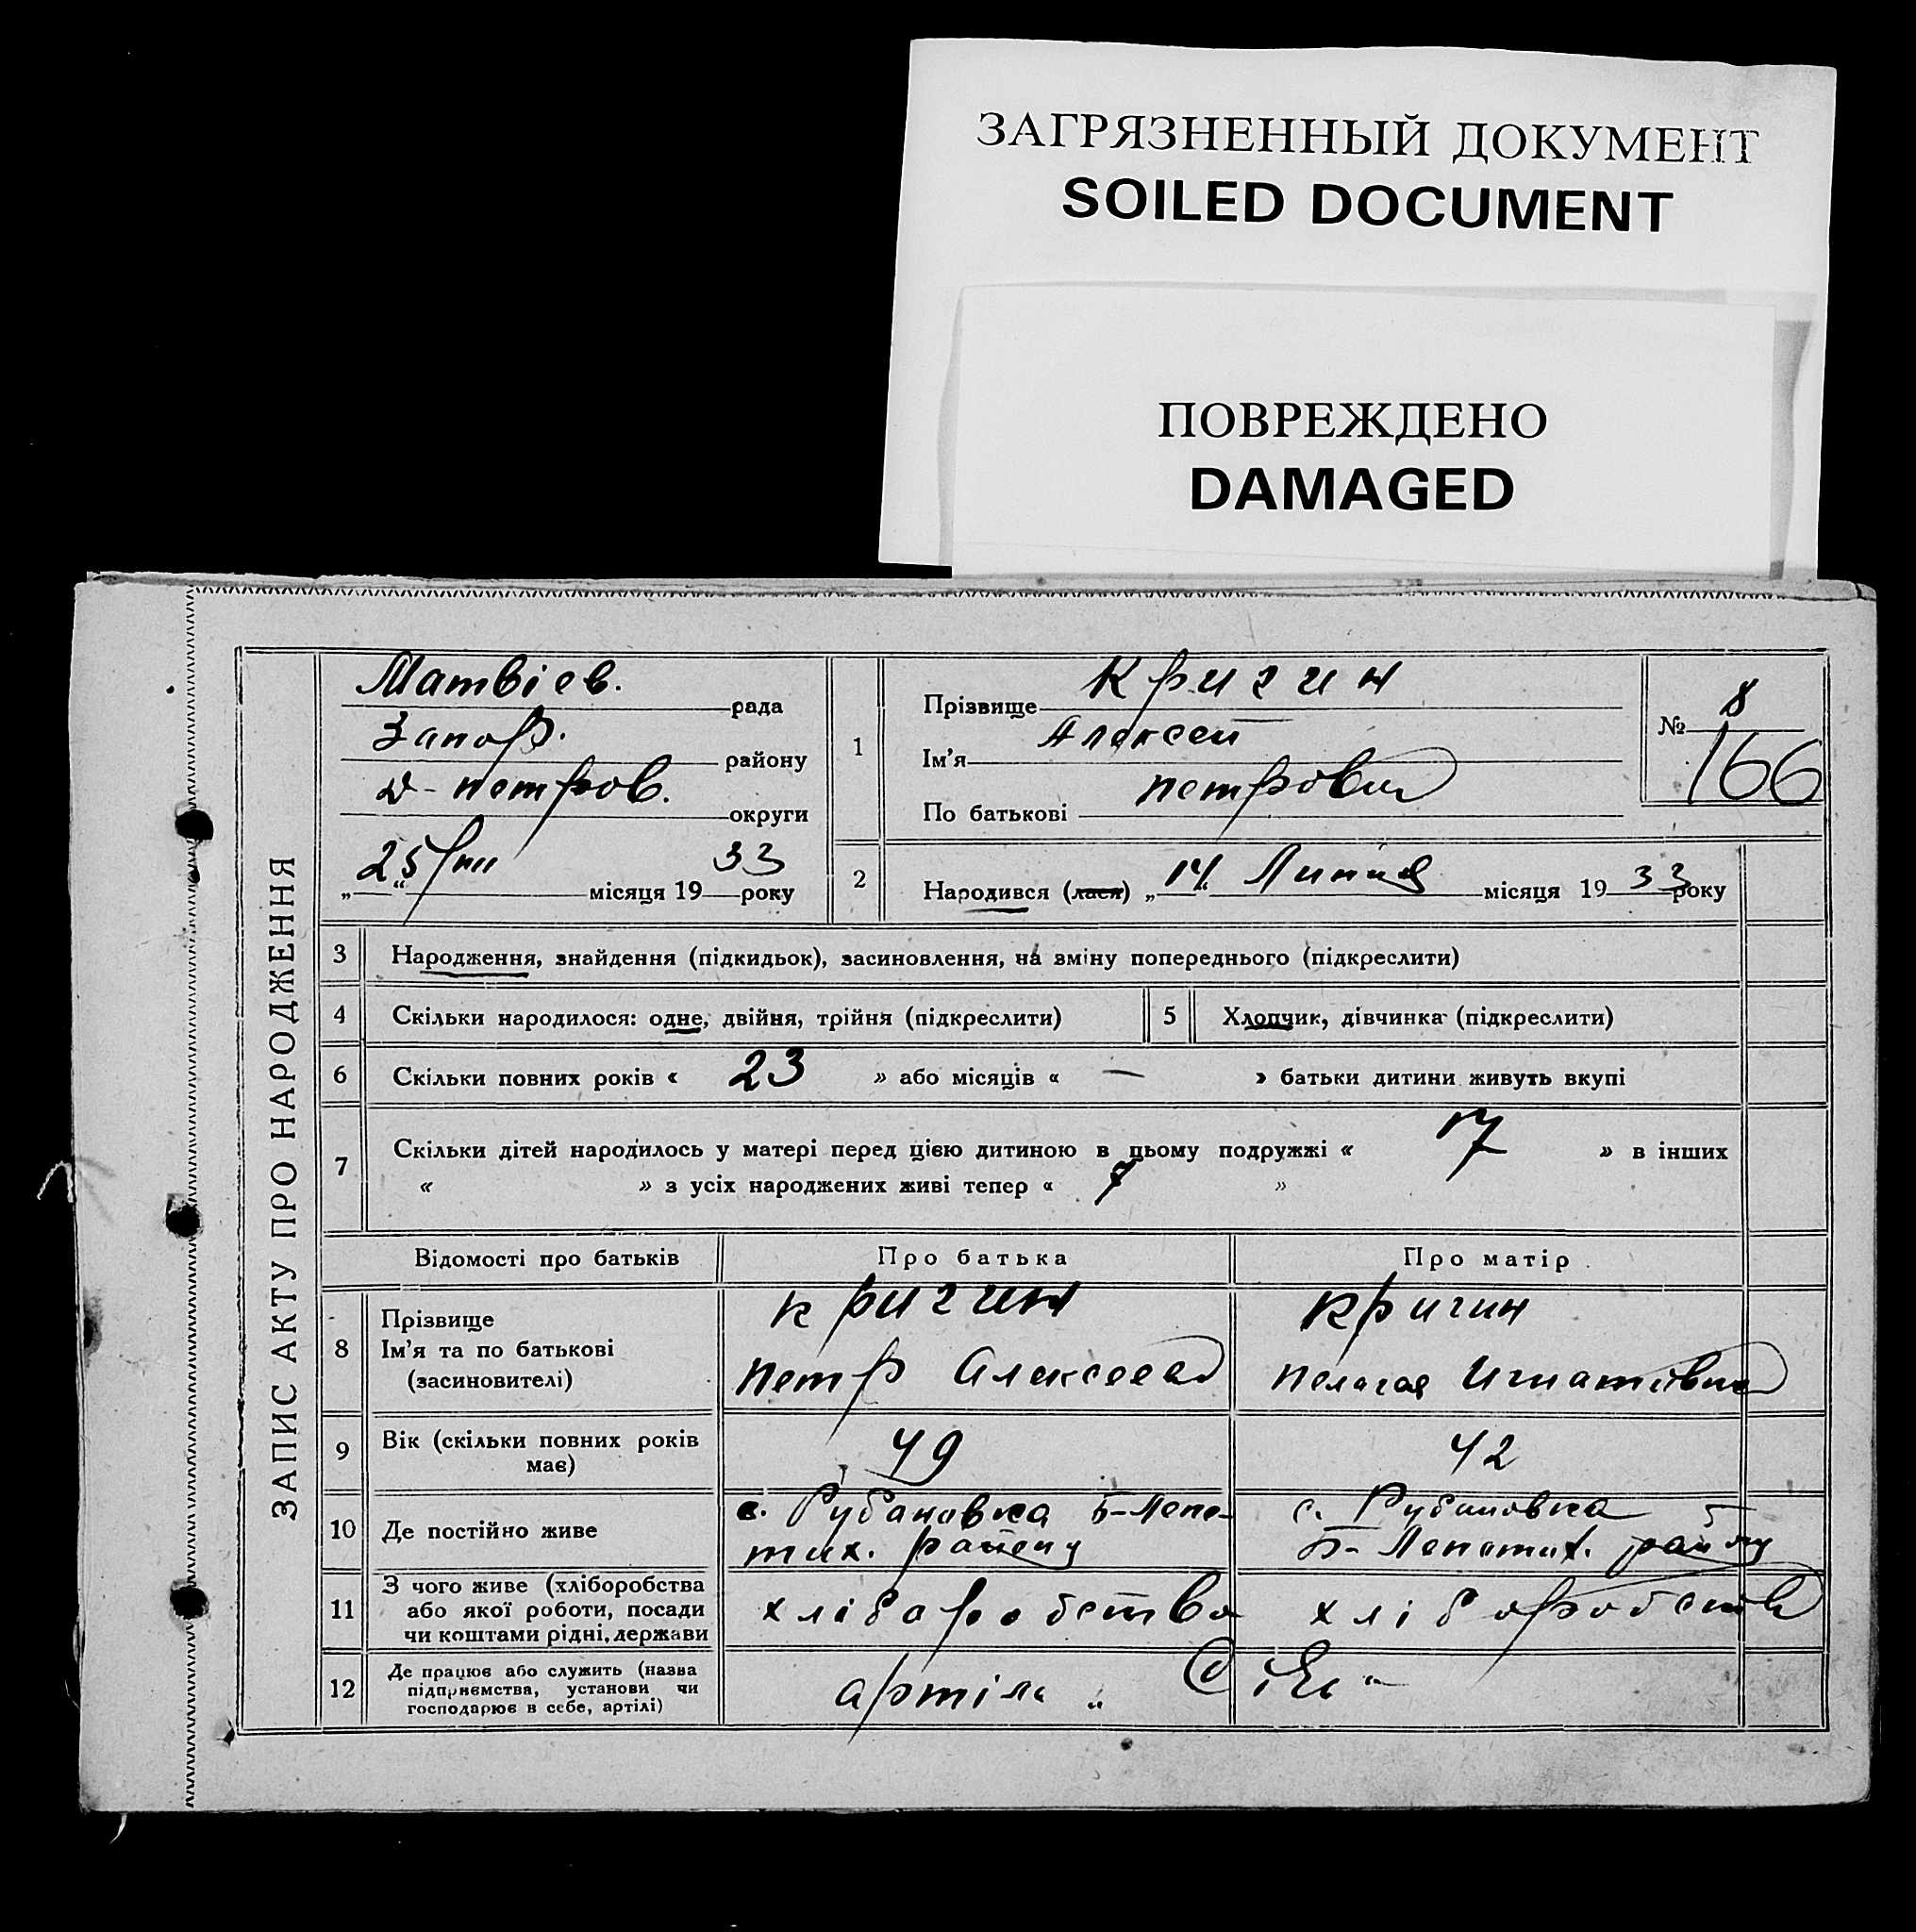 ЗАГРЯЗНЕННЫЙ ДОКУМЕНТ
SOILED DOCUMENT
ПОВРЕЖДЕНО
DAMAGED
ЗАПИС АКТУ ПРО НАРОДЖЕННЯ
Матвіев. рада
Запор. району
Д-петров. округи
„25“ місяця 1933 року
1
Прізвище Кригин
Ім’я Алексей
По батькові петрович
№ 8
166
2
Народився (лася) „14“ Липня місяця 1933 року
3 Народження, знайдення (підкидьок), засиновлення, на зміну попереднього (підкреслити)
4 Скільки народилося: одне, двійня, трійня (підкреслити)
5 Хлопчик, дівчинка (підкреслити)
6 Скільки повних років « 23 » або місяців « — » батьки дитини живуть вкупі
7 Скільки дітей народилось у матері перед цією дитиною в цьому подружжі « 7 » в інших
« » з усіх народжених живі тепер « 7 »
Відомості про батьків Про батька Про матір
8 Прізвище
Ім’я та по батькові
(засиновителі)
Кригин
Петр Алексеев
Кригин
Пелагея Игнатовна
9 Вік (скільки повних років
має)
49
42
10 Де постійно живе
с. Рубановка Б-Лепе-
тих. району
с. Рубановка
Б-Лепетих. району
11 З чого живе (хліборобства
або якої роботи, посади
чи коштами рідні, держави
хліборобство
хліборобство
12 Де працює або служить (назва
підприємства, установи чи
господарює в себе, артілі)
артіль „